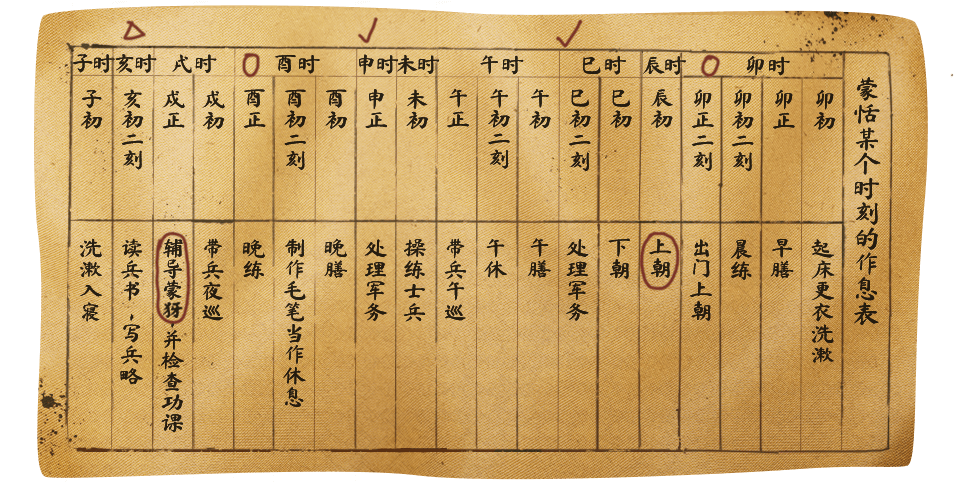 蒙恬某个时刻的作息表
卯时
卯初
起床更衣洗漱
卯正
早膳
卯初二刻
晨练
卯正二刻
出门上朝
辰时
辰初
上朝
巳时
巳初
下朝
巳初二刻
处理军务
午时
午初
午膳
午初二刻
午休
午正
带兵午巡
未时
未初
操练士兵
申时
申正
处理军务
酉时
酉初
晚膳
酉初二刻
制作毛笔当作休息
酉正
晚练
戌时
戌初
带兵夜巡
戌正
辅导蒙犽，并检查功课
亥时
亥初二刻
读兵书，写兵略
子时
子初
洗漱入寝